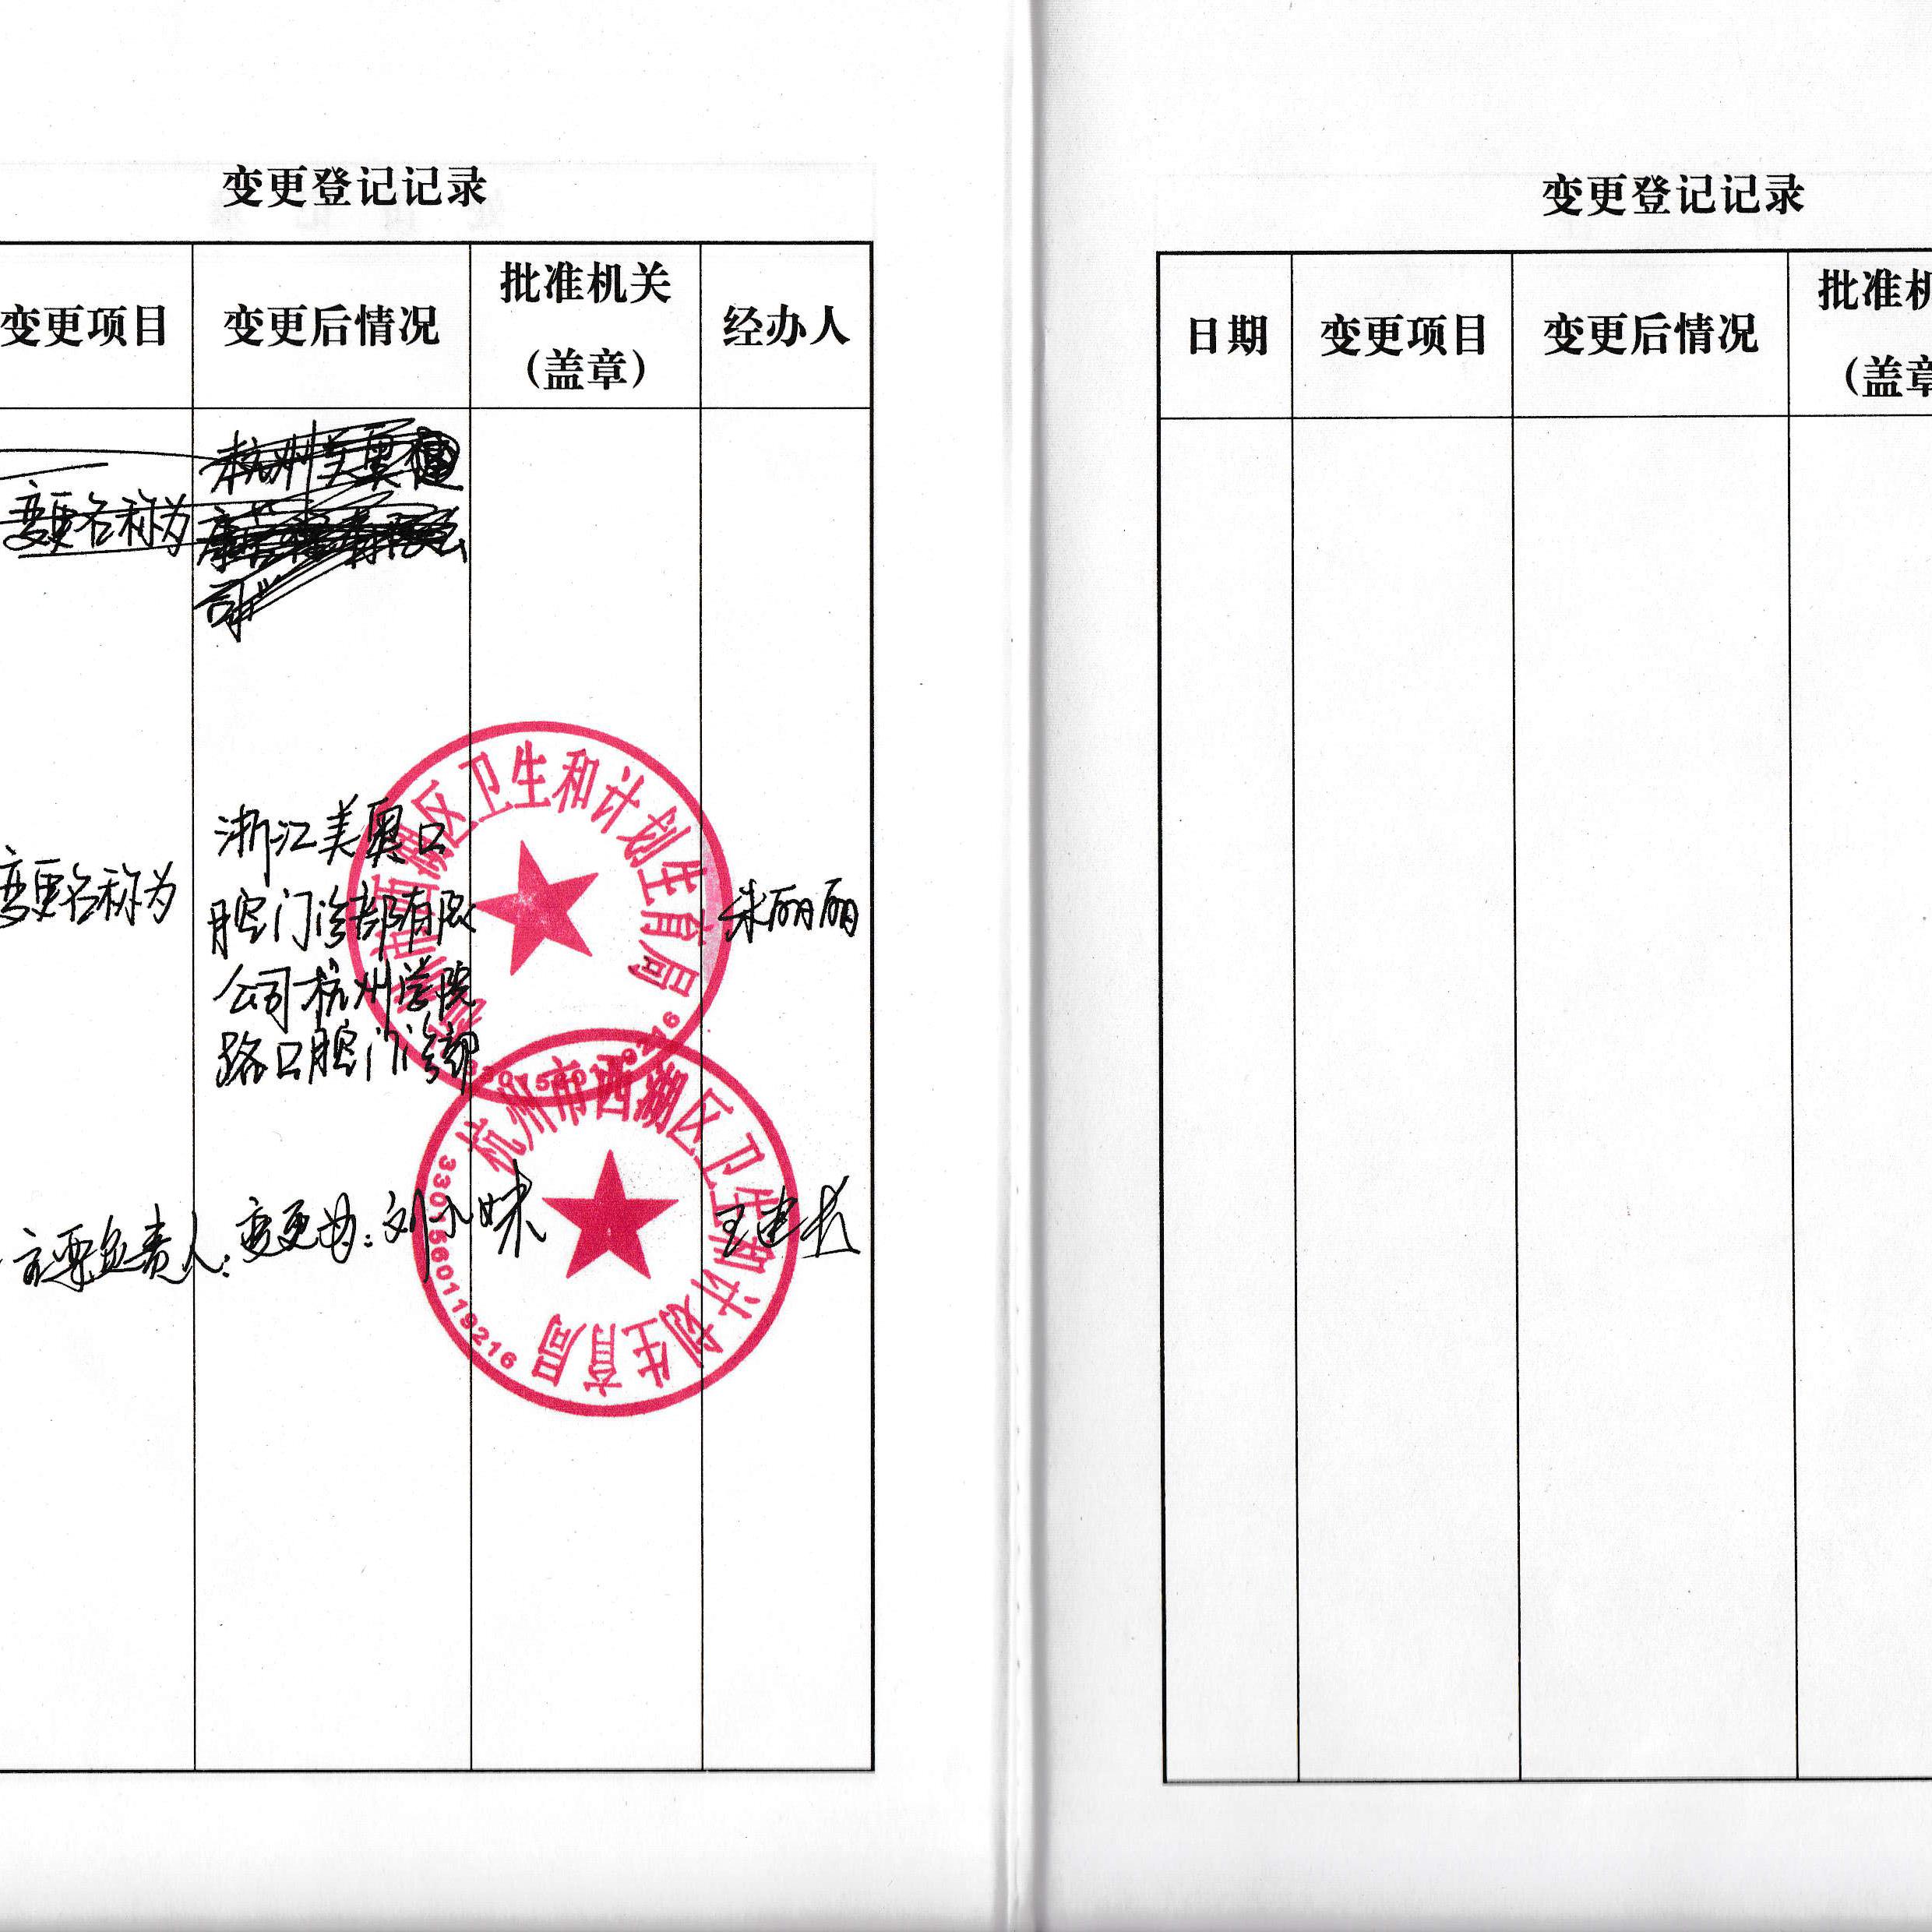 变更登记记录
变更项目 变更后情况 批准机关（盖章） 经办人
变更名称为
杭州美奥健
司
变更名称为
浙江美奥口
腔门诊部有限
公司杭州学院
路口腔门诊部
朱丽丽
杭州市西湖区卫生和计划生育局
主要负责人：变更为：刘小妹
杭州市西湖区卫生和计划生育局
3301560119216
变更登记记录
日期 变更项目 变更后情况 批准机
（盖章